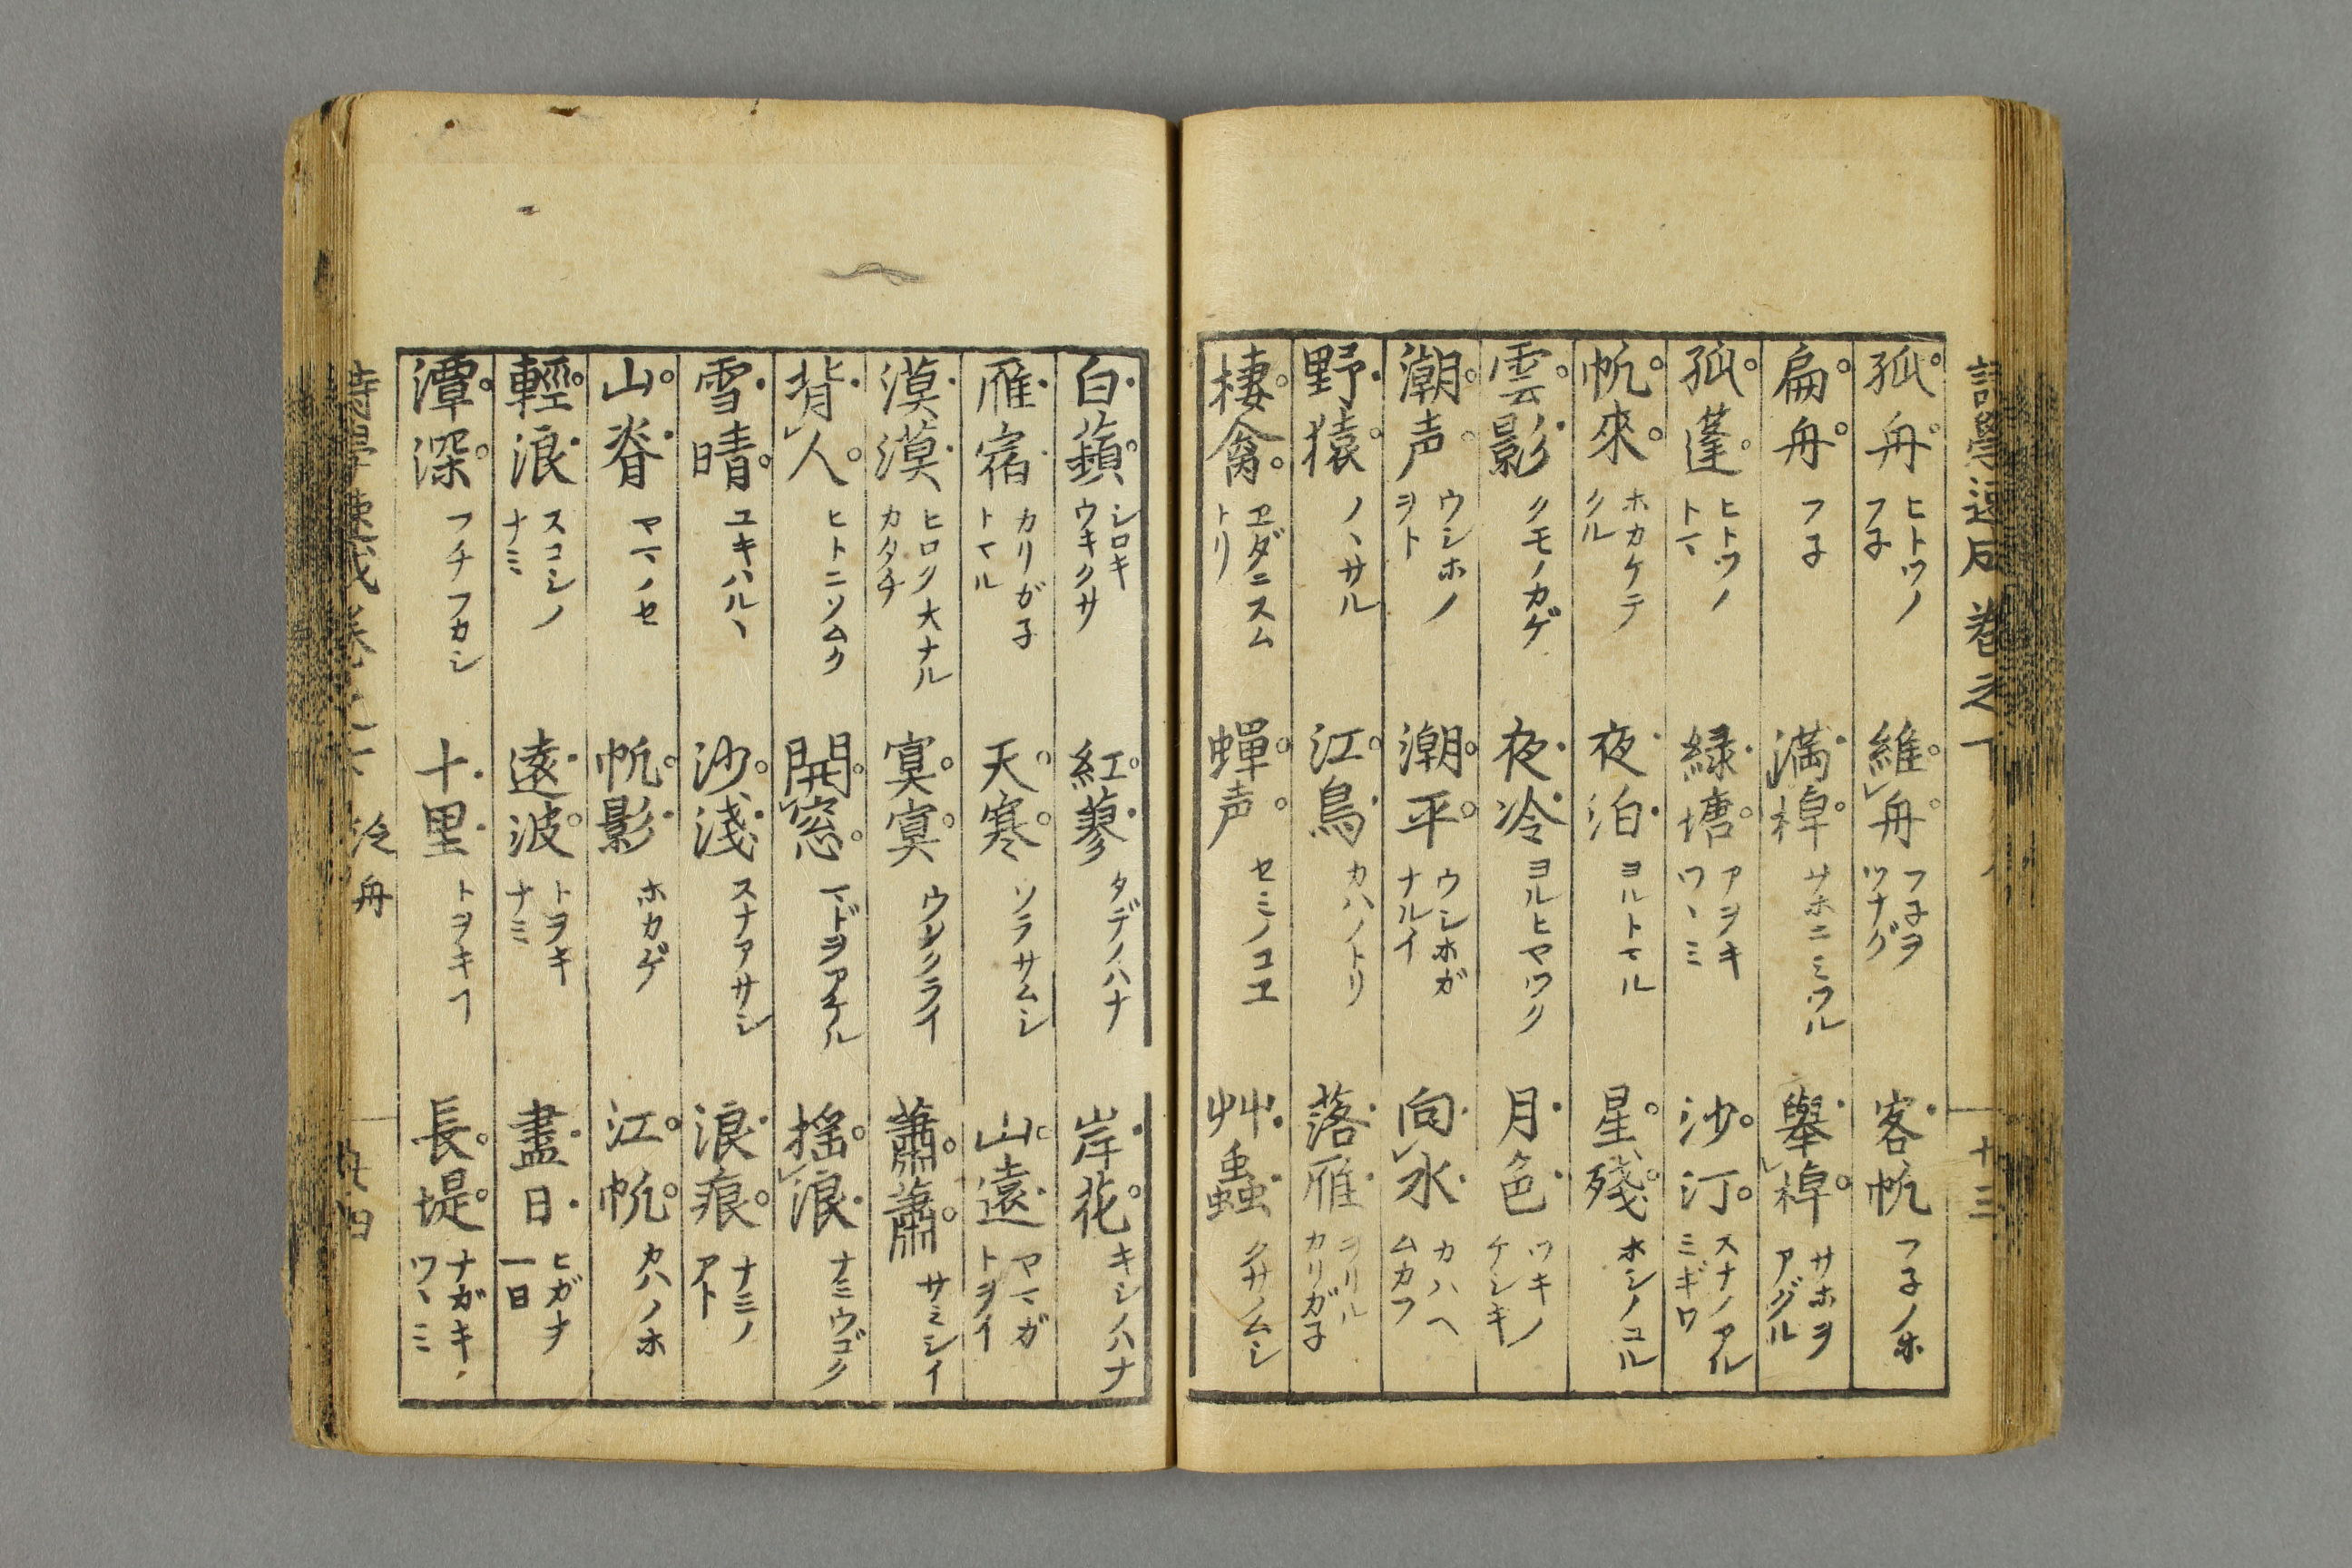 詩學逕庭卷之下
十三
孤舟 ヒトツノフ子 維舟 フ子ヲツナグ 客帆 フ子ノホ
扁舟 フ子 満棹 サホニミツル 擧棹 サホヲアグル
孤蓬 ヒトツノトマ 緑塘 アヲキツヽミ 沙汀 スナノアルミギワ
帆來 ホカケテクル 夜泊 ヨルトマル 星殘 ホシノコル
雲影 クモノカゲ 夜冷 ヨルヒヤツク 月色 ツキノケシキ
潮声 ウシホノヲト 潮平 ウシホガナルイ 向水 カハヘムカフ
野猿 ノヽサル 江鳥 カハノトリ 落雁 ヲリルカリガ子
棲禽 ヱダニスムトリ 蟬声 セミノコヱ 艸蟲 クサノムシ
白蘋 シロキウキクサ 紅蓼 タデノハナ 岸花 キシノハナ
雁宿 カリガ子トマル 天寒 ソラサムシ 山遠 ヤマガトヲイ
漠漠 ヒロク大ナルカタチ 寞寞 ウスクライ 蕭蕭 サミシイ
背人 ヒトニソムク 開窓 マドヲアケル 揺浪 ナミウゴク
雪晴 ユキハルヽ 沙淺 スナアサシ 浪痕 ナミノアト
山脊 ヤマノセ 帆影 ホカゲ 江帆 カハノホ
輕浪 スコシノナミ 遠波 トヲキナミ 盡日 ヒガナ一日
潭深 フチフカシ 十里 トヲキヿ 長堤 ナガキツヽミ
泛舟